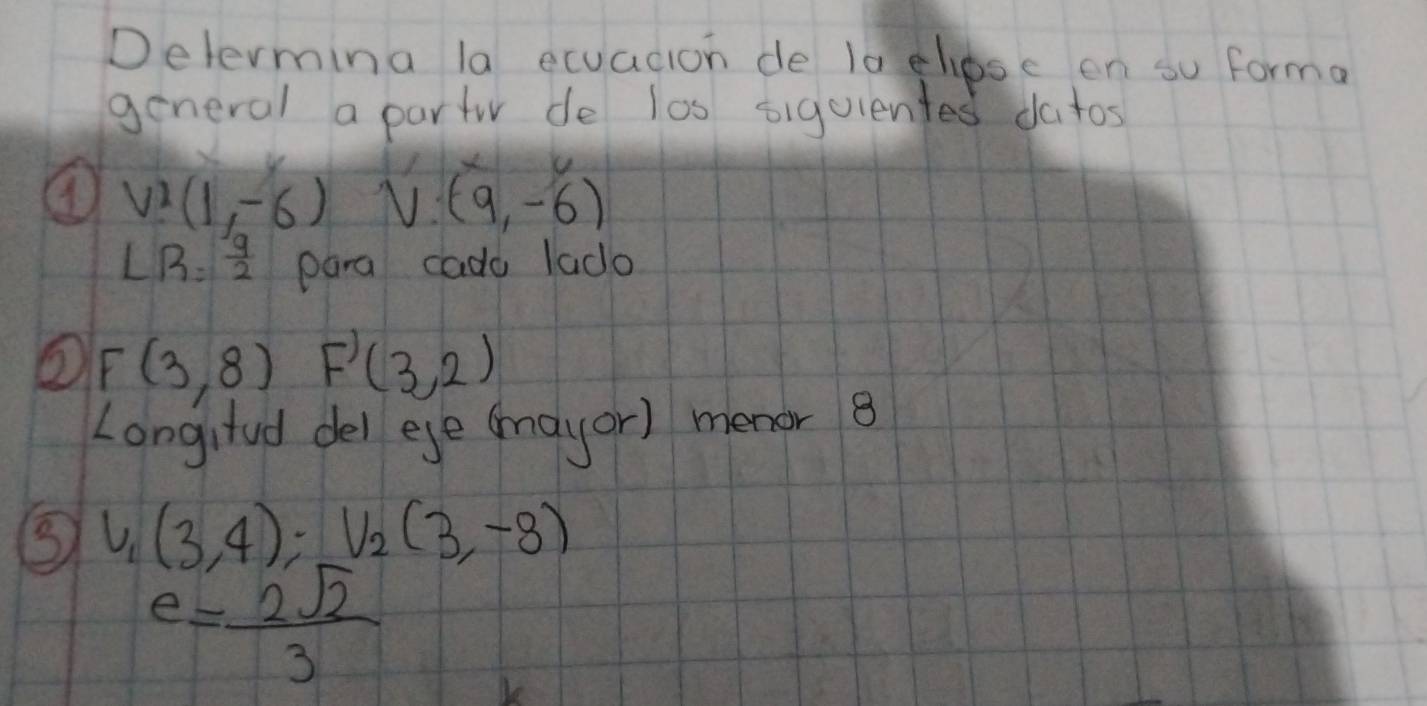 Determina la ecuación de la elipse en su forma
general a partir de los siguientes datos
x y x y
① V2(1,-6) V:(9,-6)
LR= 9/2 para cada lado
② F(3,8) F'(3,2)
Longitud del eje (mayor) menor 8
③ V₁(3,4); V₂(3,-8)
e = 2√2/3